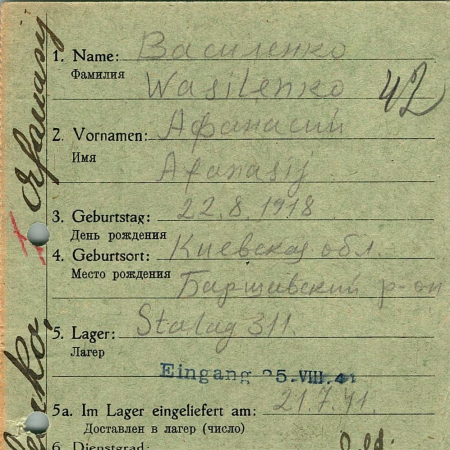 Василенко
1. Name:
Фамилия
Wasilenko
42
Афанасий
2. Vornamen:
Имя
Afanasij
3. Geburtstag: 22.8.1918
День рождения
4. Geburtsort: Киевская обл.
Место рождения
Барщивский р-он
5. Lager: Stalag 311.
Лагер
Eingang 25.VIII.41
5a. Im Lager eingeliefert am: 21.7.41.
Доставлен в лагер (число)
6. Dienstgrad:
Afanasy